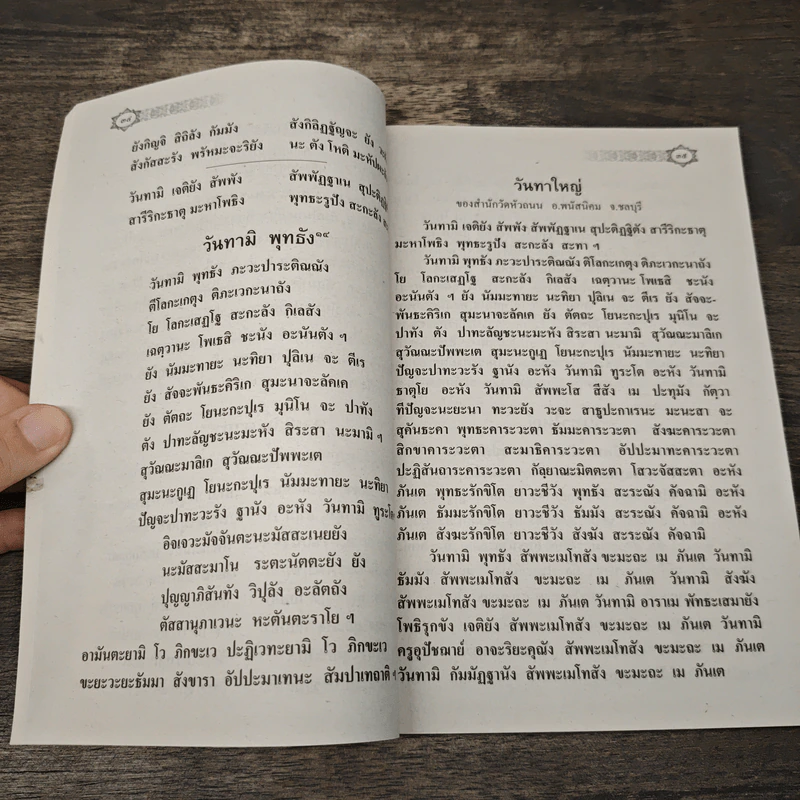 ๓๔
ยังกิญจิ สิถิลัง กัมมัง สังกิลิฏฐัญจะ ยัง
สังกัสสะรัง พรัหมะจะริยัง นะ ตัง โหติ
วันทามิ เจติยัง สัพพัง สัพพัฏฐาเน
สารีริกะธาตุ มะหาโพธิง พุทธะรูปัง สะกะลัง
วันทามิ พุทธัง๑๙
วันทามิ พุทธัง ภะวะปาระติณณัง
ตีโลกะเกตุง ติภะเวกะนาถัง
โย โลกะเสฏโฐ สะกะลัง กิเลสัง
เฉตฺวานะ โพเธสิ ชะนัง อะนันตัง ฯ
ยัง นัมมะทายะ นะทิยา ปุลิเน จะ ตีเร
ยัง สัจจะพันธะคิริเก สุมะนาจะลัคเค
ยัง ตัตถะ โยนะกะปุเร มุนิโน จะ ปาทัง
ตัง ปาทะลัญชะนะมะหัง สิระสา นะมามิ ฯ
สุวัณณะมาลิเก สุวัณณะปัพพะเต
สุมะนะกูเฏ โยนะกะปุเร นัมมะทายะ นะทิยา
ปัญจะปาทะวะรัง ฐานัง อะหัง วันทามิ
อิจเจวะมัจจันตะนะมัสสะเนยยัง
นะมัสสะมาโน ระตะนัตตะยัง ยัง
ปุญญาภิสันทัง วิปุลัง อะลัตถัง
ตัสสานุภาเวนะ หะตันตะราโย ฯ
อามันตะยามิ โว ภิกขะเว ปะฏิเวทะยามิ โว ภิกขะเว
ขะยะวะยะธัมมา สังขารา อัปปะมาเทนะ สัมปาเทถาติ ฯ
๓๕
วันทาใหญ่
ของสำนักวัดหัวถนน อ.พนัสนิคม จ.ชลบุรี
วันทามิ เจติยัง สัพพัง สัพพัฏฐาเน สุปะติฏฐิตัง สารีริกะธาตุ
มะหาโพธิง พุทธะรูปัง สะกะลัง สะทา ฯ
วันทามิ พุทธัง ภะวะปาระติณณัง ตีโลกะเกตุง ติภะเวกะนาถัง
โย โลกะเสฏโฐ สะกะลัง กิเลสัง เฉตฺวานะ โพเธสิ ชะนัง
อะนันตัง ฯ ยัง นัมมะทายะ นะทิยา ปุลิเน จะ ตีเร ยัง สัจจะ-
พันธะคิริเก สุมะนะจะลัคเค ยัง ตัตถะ โยนะกะปุเร มุนิโน จะ
ปาทัง ตัง ปาทะลัญชะนะมะหัง สิระสา นะมามิ สุวัณณะมาลิเก
สุวัณณะปัพพะเต สุมะนะกูเฏ โยนะกะปุเร นัมมะทายะ นะทิยา
ปัญจะปาทะวะรัง ฐานัง อะหัง วันทามิ ทูระโต อะหัง วันทามิ
ธาตุโย อะหัง วันทามิ สัพพะโส สีสัง เม ปะทุมัง กัตฺวา
ทีปัญจะนะยะนา ทะวะยัง วะจะ สาธูปะกาเรนะ มะนะสา จะ
สุคันธะคา พุทธะคาระวะตา ธัมมะคาระวะตา สังฆะคาระวะตา
สิกขาคาระวะตา สะมาธิคาระวะตา อัปปะมาทะคาระวะตา
ปะฏิสันถาระคาระวะตา กัลฺยาณะมิตตะตา โสวะจัสสะตา อะหัง
ภันเต พุทธะรักขิโต ยาวะชีวัง พุทธัง สะระณัง คัจฉามิ อะหัง
ภันเต ธัมมะรักขิโต ยาวะชีวัง ธัมมัง สะระณัง คัจฉามิ อะหัง
ภันเต สังฆะรักขิโต ยาวะชีวัง สังฆัง สะระณัง คัจฉามิ
วันทามิ พุทธัง สัพพะเมโทสัง ขะมะถะ เม ภันเต วันทามิ
ธัมมัง สัพพะเมโทสัง ขะมะถะ เม ภันเต วันทามิ สังฆัง
สัพพะเมโทสัง ขะมะถะ เม ภันเต วันทามิ อาราเม พัทธะเสมายัง
โพธิรุกขัง เจติยัง สัพพะเมโทสัง ขะมะถะ เม ภันเต วันทามิ
ครูอุปัชฌาย์ อาจะริยะคุณัง สัพพะเมโทสัง ขะมะถะ เม ภันเต
วันทามิ กัมมัฏฐานัง สัพพะเมโทสัง ขะมะถะ เม ภันเต